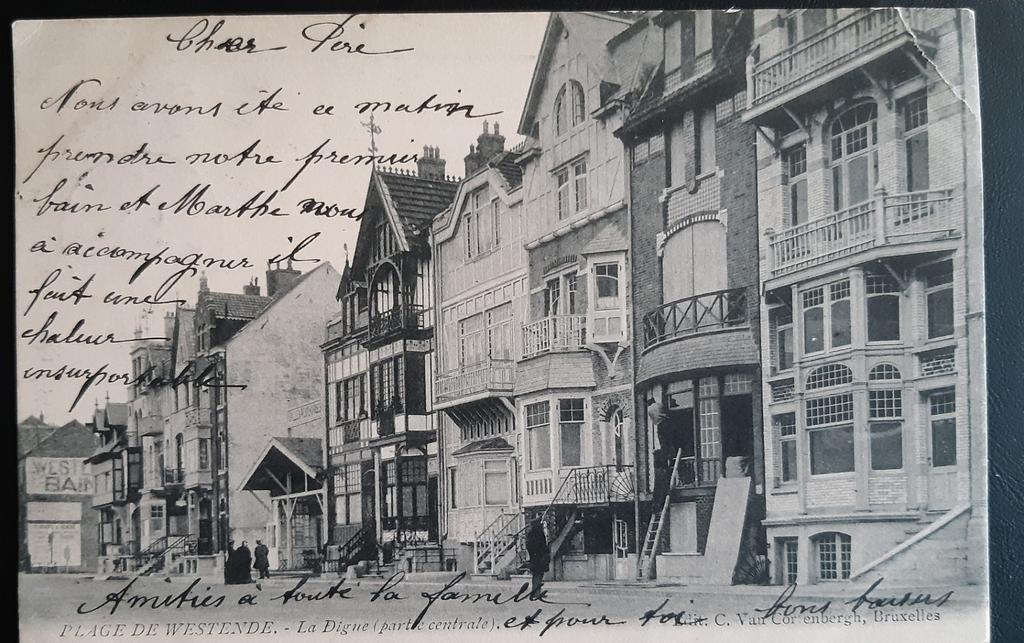 Cher Père
Nous avons été ce matin
prendre notre premier
bain et Marthe nous
a accompagner il
fait une
chaleur
insurportable
WEST
BAIN
Amitiés à toute la famille
et pour toi bons baisers
PLAGE DE WESTENDE. - La Digue (partie centrale).
Edit. C. Van Cortenbergh, Bruxelles